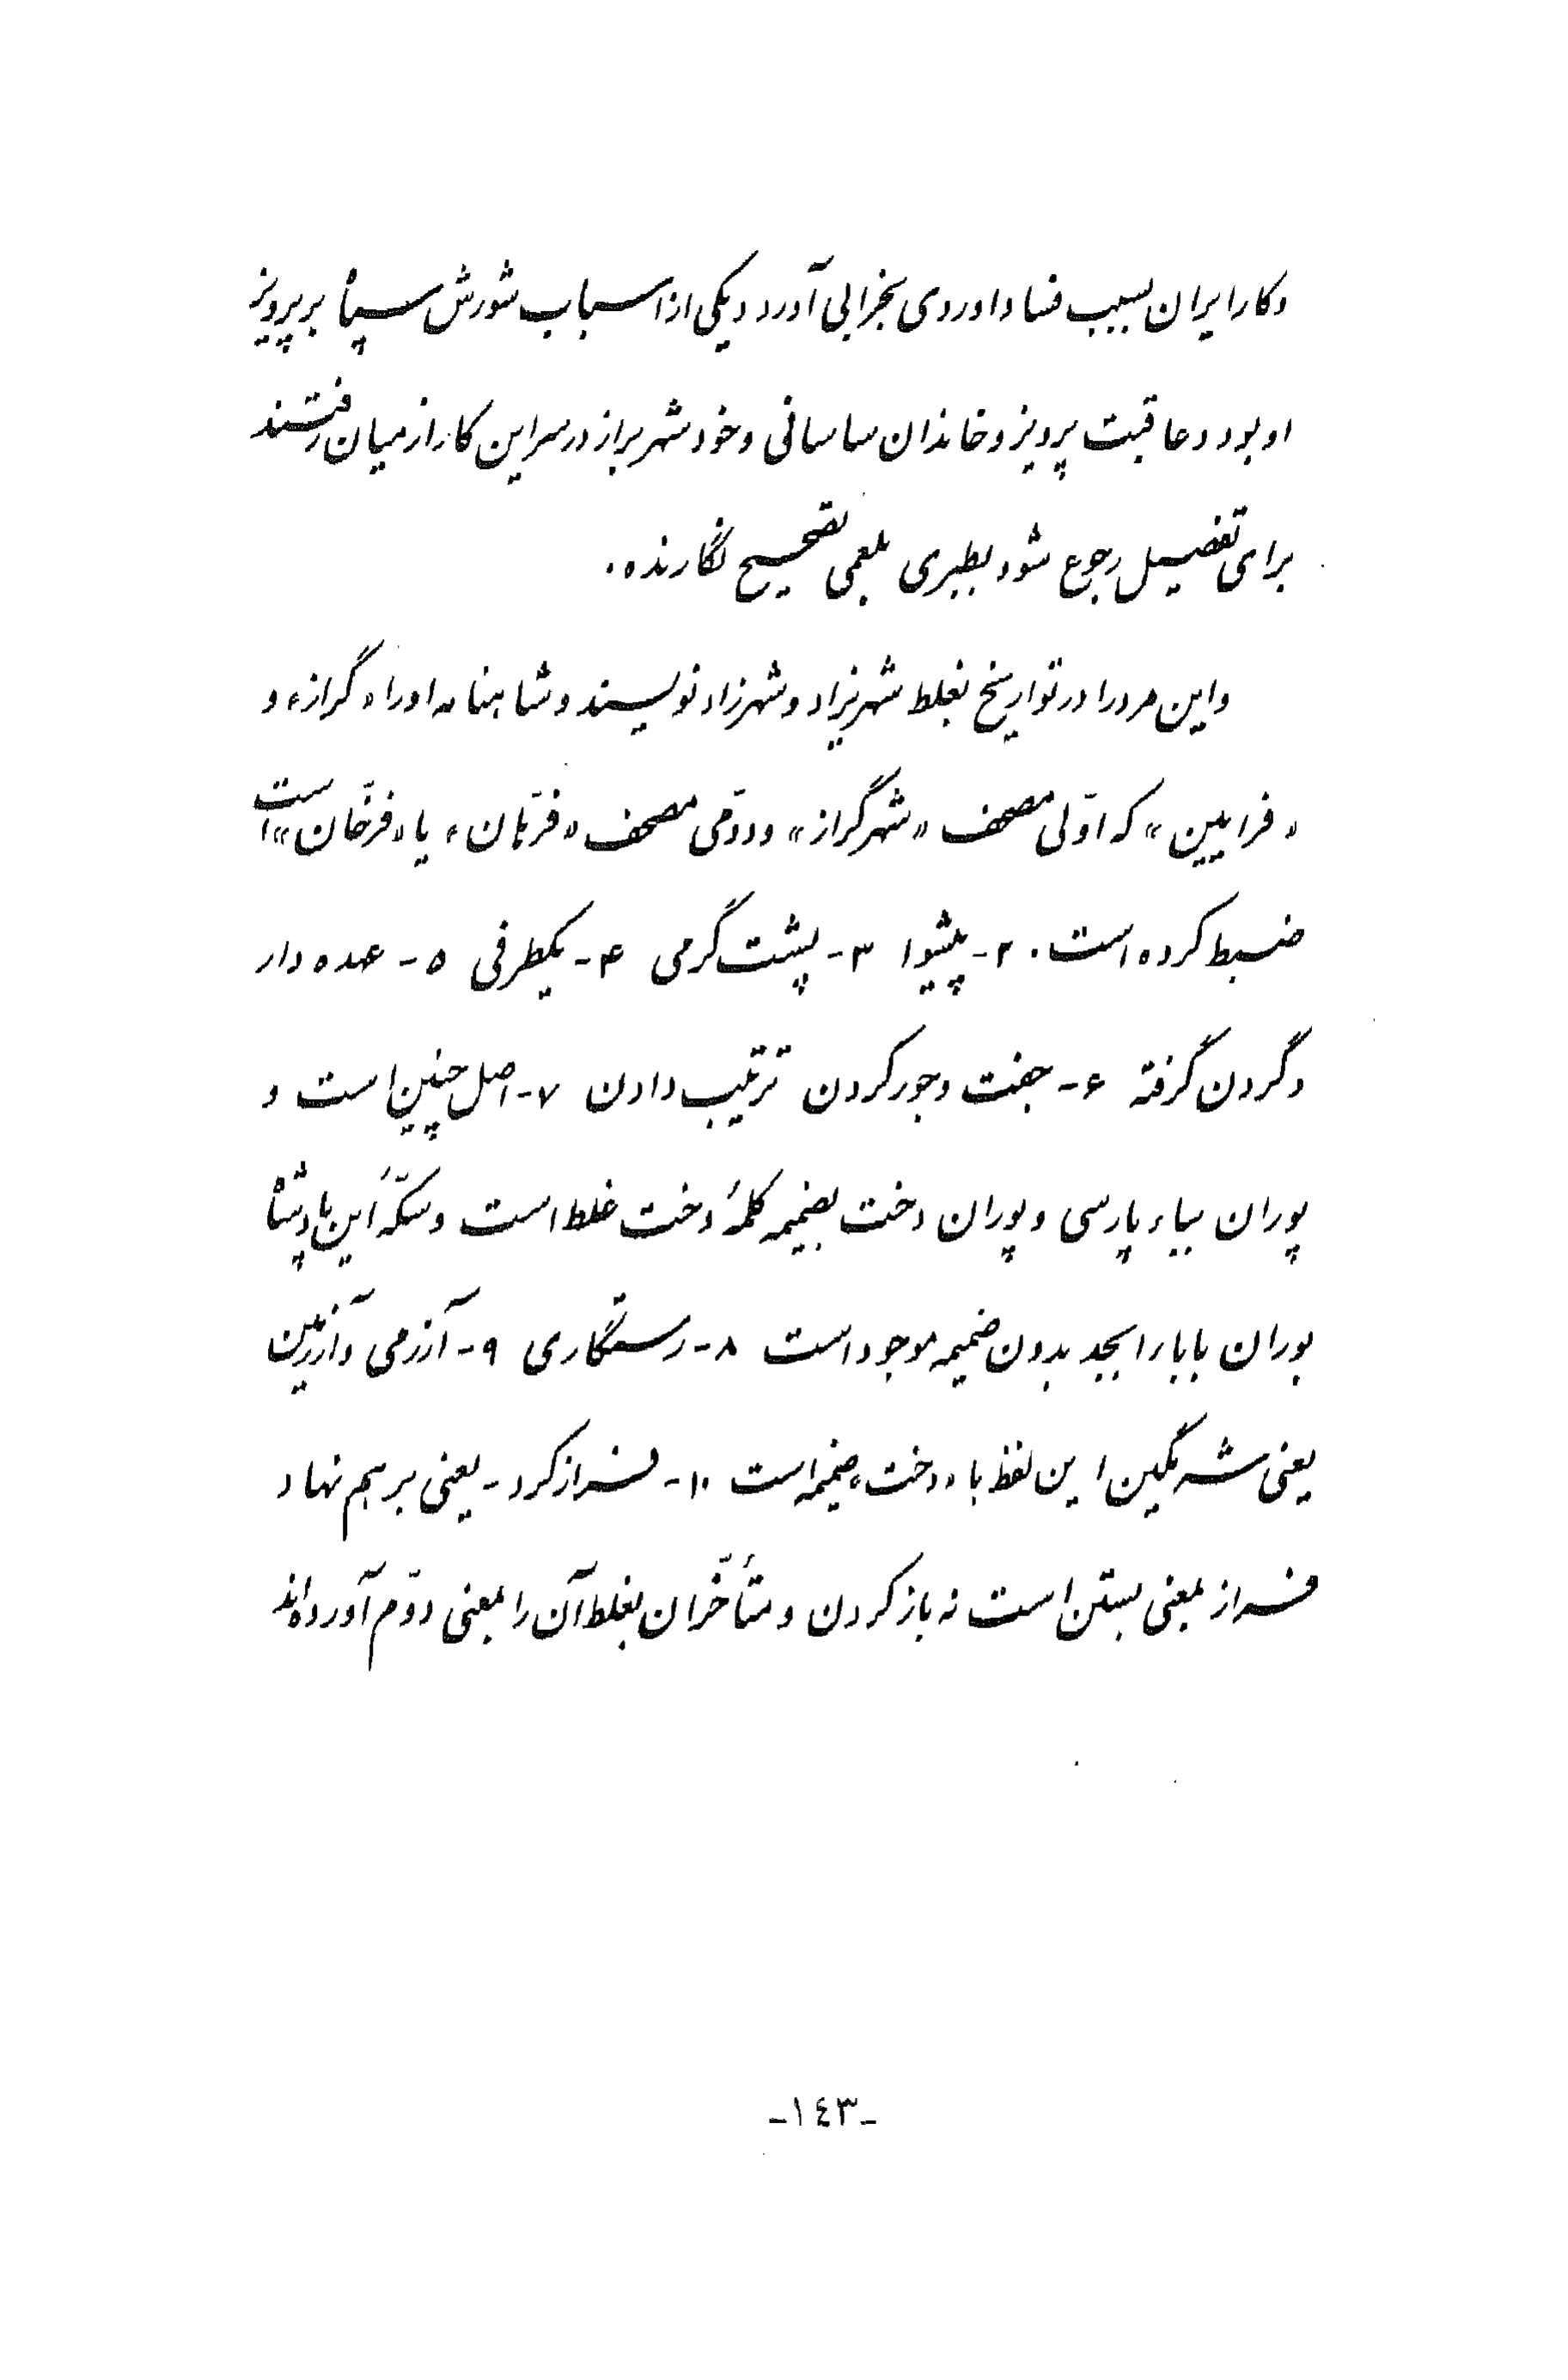 و کار ایران بسبب فساد اوروی بخرابی آورد و یکی از اسباب شورش سپاه بر پرویز
او بود و عاقبت پرویز و خاندان ساسانی و خود شهربراز در سر این کار از میان رفتند
برای تفصیل رجوع شود بطبری بلعمی تصحیح نگارنده .
و این مرد را در تواریخ بغلط شهریزاد و شهرزاد نویسند و شاهنامه او را «گراز» و
«فرایین» که اوّلی مصحف «شهرگراز» و دوّمی مصحف «فرّخان» یا «فرخّان» است
ضبط کرده است . ۲- پیشوا ۳- پشت گرمی ۴- یکطرفی ۵- عهده دار
و گردن گرفته ۶- جفت و جور کردن ترتیب دادن ۷- اصل چنین است و
پوران بباء پارسی و پوران دخت بضمیمه کلمهٔ دخت غلط است و سکّهٔ این پادشاه
بوران با باء ابجد بدون ضمیمه موجود است ۸- رستگاری ۹- آزرمی و آزرمین
یعنی شرمگین این لفظ با «دخت» ضمیمه است ۱۰- فراز کرد - یعنی بر هم نهاد
فراز بمعنی بستن است نه باز کردن و متأخّران بغلط آن را بمعنی دوّم آورده‌اند
-۱٤۳-